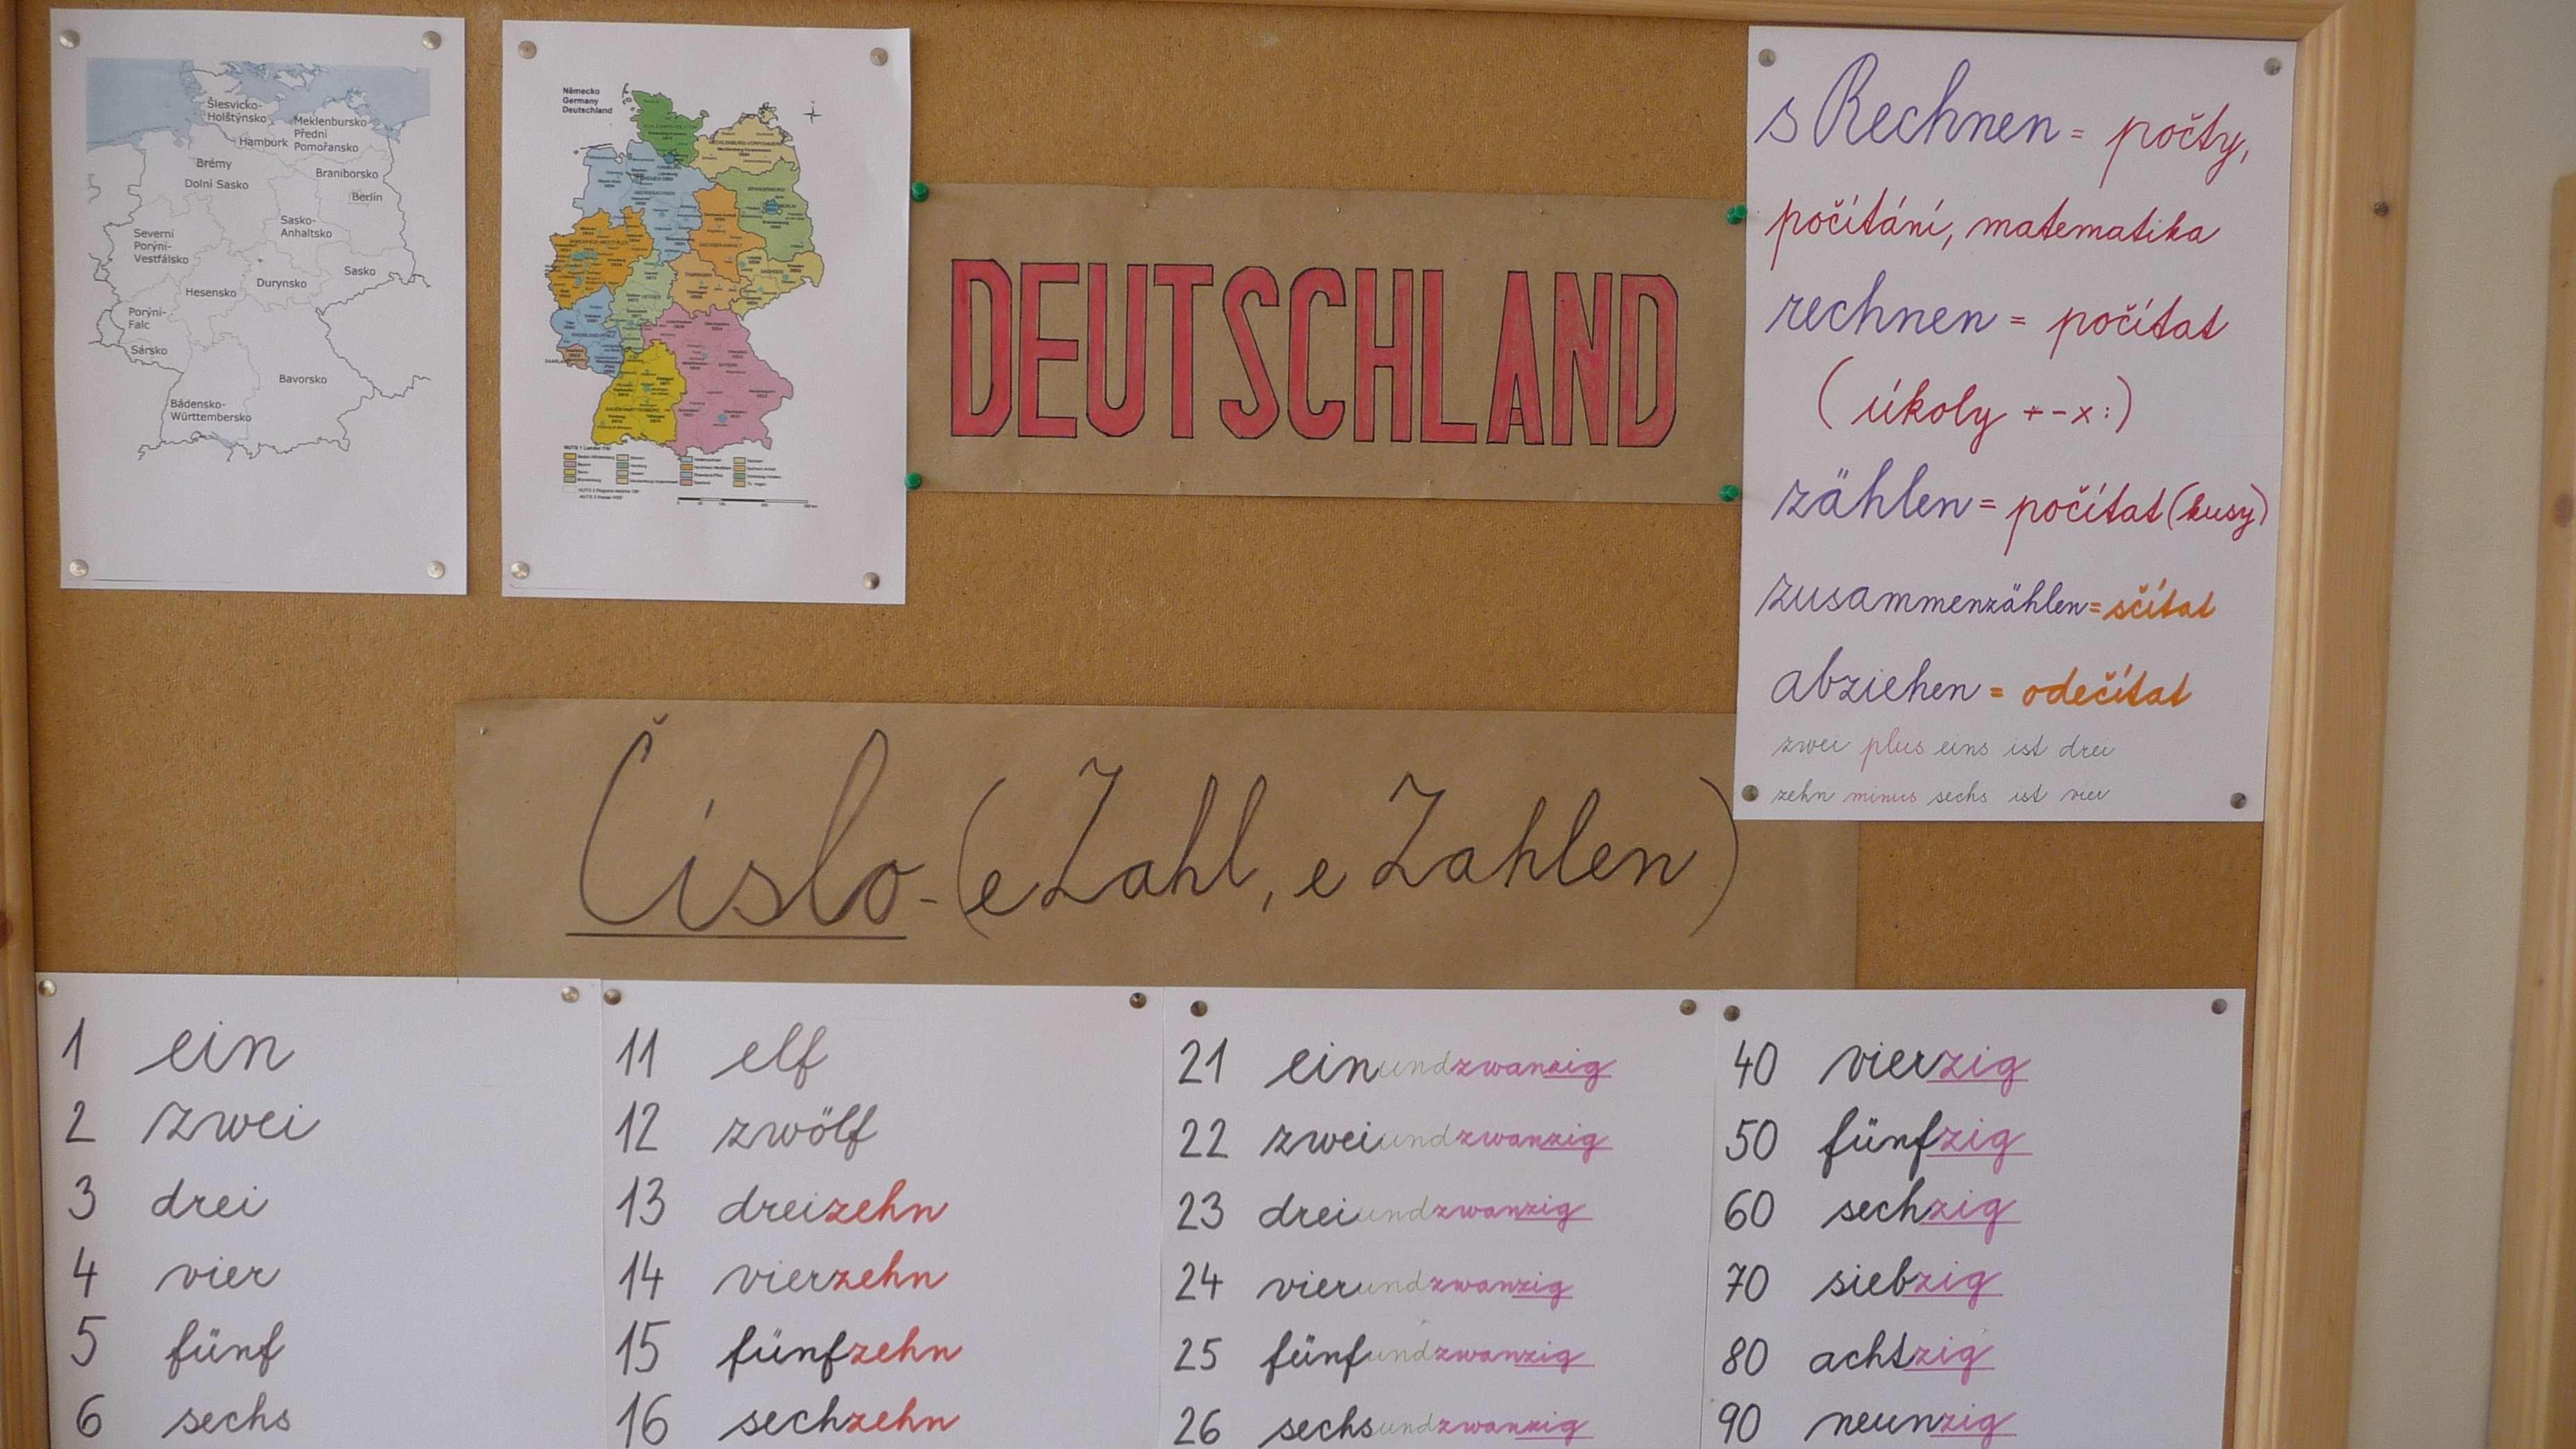 Šlesvicko-
Holštýnsko
Meklenbursko-
Přední
Pomořansko
Hamburk
Brémy
Dolní Sasko
Braniborsko
Berlín
Sasko-
Anhaltsko
Severní
Porýní-
Vestfálsko
Sasko
Durynsko
Hesensko
Porýní-
Falc
Sársko
Bavorsko
Bádensko-
Württembersko
Německo
Germany
Deutschland
DEUTSCHLAND
s Rechnen = počty,
počítání, matematika
rechnen = počítat
(úkoly + - x :)
zählen = počítat (kusy)
zusammenzählen = sčítat
abziehen = odečítat
zwei plus eins ist drei
zehn minus sechs ist vier
Číslo - (e Zahl, e Zahlen)
1 ein
2 zwei
3 drei
4 vier
5 fünf
6 sechs
11 elf
12 zwölf
13 dreizehn
14 vierzehn
15 fünfzehn
16 sechzehn
21 einundzwanzig
22 zweiundzwanzig
23 dreiundzwanzig
24 vierundzwanzig
25 fünfundzwanzig
26 sechsundzwanzig
40 vierzig
50 fünfzig
60 sechzig
70 siebzig
80 achtzig
90 neunzig